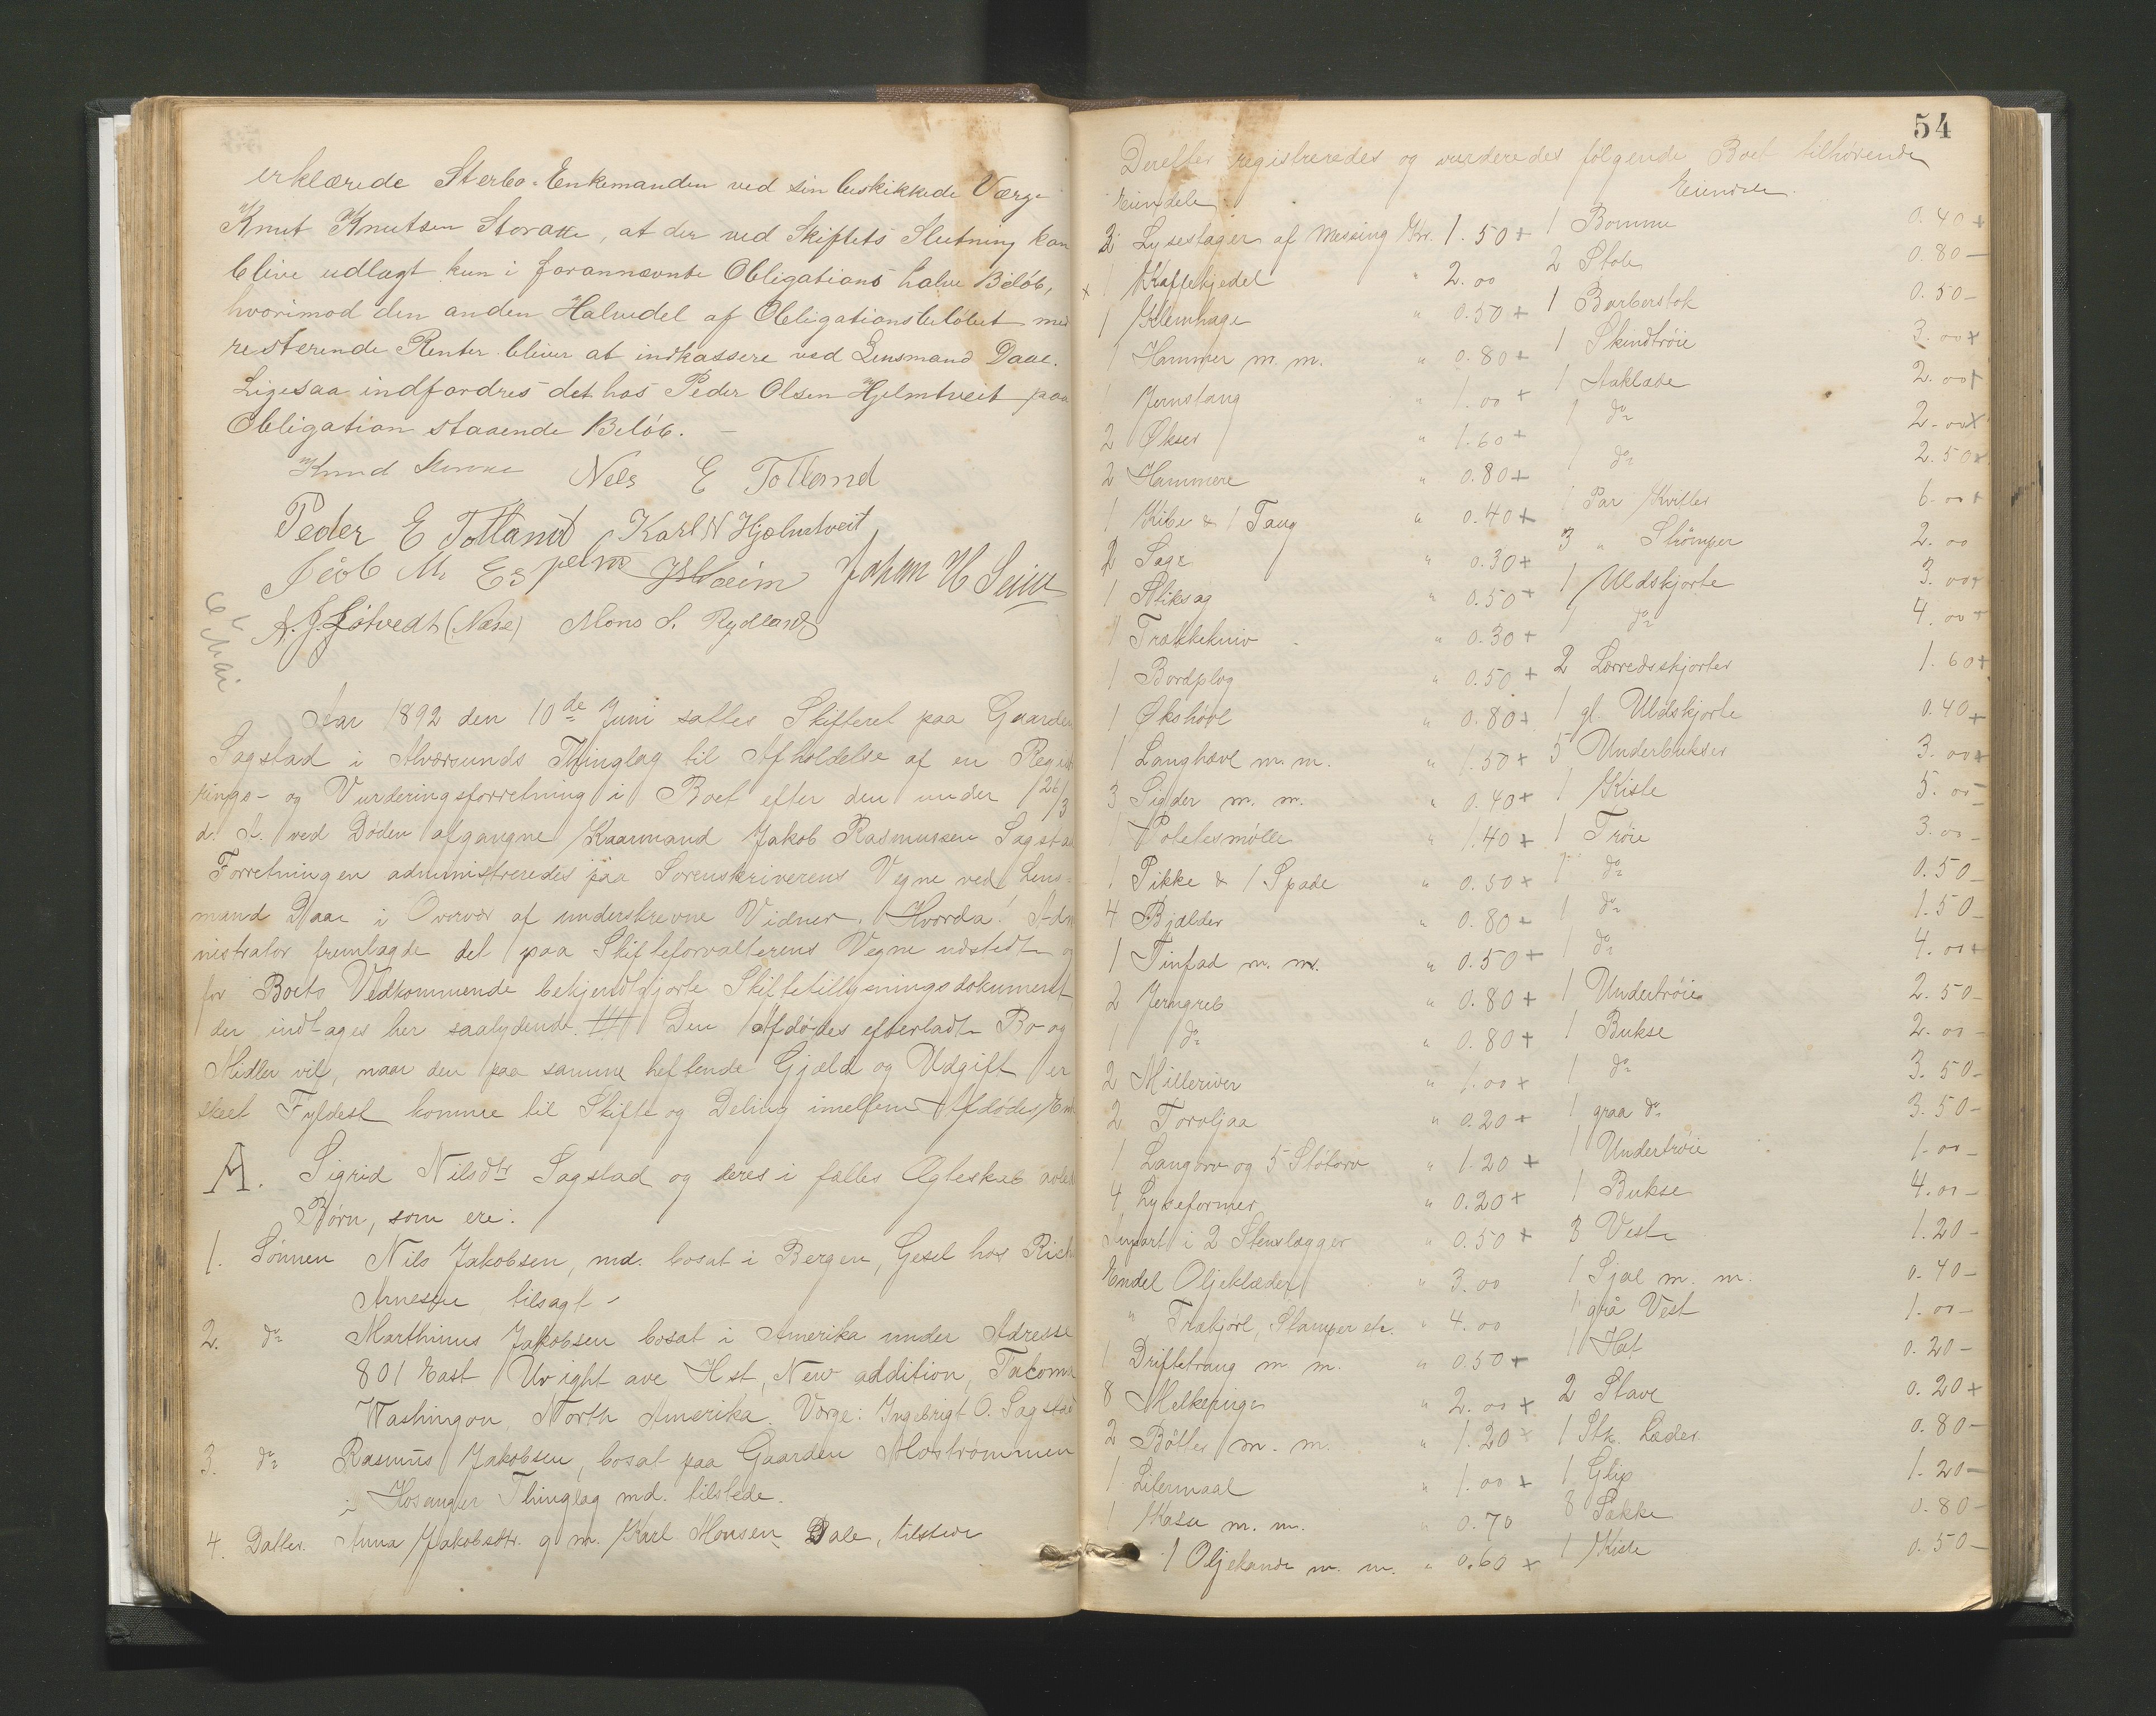 erklærede Sterbo-Enkemanden ved sin beskikkede Værge
Knut Knutsen Storake, at der ved Skiftets Slutning kan
blive udlagt kun i forannævnte Obligations halve Beløb,
hvorimod den anden Halvdel af Obligationsbeløbet med
resterende Renter bliver at indkassere ved Lensmand Daae.
Ligesaa indfordres det hos Peder Olsen Hjelmtveit paa
Obligation staaende Beløb. —
Knud Nels E Totland
Peder E Totland Karl N Hjelmtveit
Jeob M. Espelm Johan H Seim
A. J. Søtvedt (Næse) Mons S. Rydland
6 Mai
Aar 1892 den 10de Juni sattes Skifteret paa Gaarden
Sagstad i Alversunds Thinglag til Afholdelse af en Regist
rings- og Vurderingsforretning i Boet efter den under 26/3
d. A. ved Døden afgangne Kaarmand Jakob Rasmussen Sagstad
Forretningen administreredes paa Sorenskriverens Vegne ved Lens-
mand Daae i Overvær af underskrevne Vidner. Hvorda! Adm
nistrator fremlagde det paa Skifteforvalterens Vegne udstedte og
for Boets Vedkommende bekjendtgjorte Skiftetillysningsdokument
der indtages her saalydende. Den Afdødes efterladte Bo og
Midler vil, naar den paa samme heftende Gjæld og Udgift er
skeet Fyldest komme til Skifte og Deling imellem Afdødes Enke
A. Sigrid Nilsdtr Sagstad og deres i fælles Ægteskab avlede
Børn, som ere:
1. Sønnen Nils Jakobsen, md. bosat i Bergen, Gesel hos Rich
Arnesen tilsagt
2. do Marthinus Jakobsen bosat i Amerika under Adresse
801 East Wright ave H st, New addition, Tacoma
Washingon, North Amerika. Værge: Ingebrigt O. Sagstad
3. do Rasmus Jakobsen, bosat paa Gaarden Mostrømmen
i Hosanger Thinglag md. tilstede.
4. Datter Anna Jakobsdtr. g m. Karl Monsen Dale, tilstede
54
Derefter registreredes og vurderedes følgende Boet tilhørende
Eiendele Eiendele.
2 Lysestager af Messing Kr. 1.50 + 1 Bomme 0.40 +
x 1 Kaffekjedel " 2.00 2 Stole 0.80 —
1 Klemhage " 0.50 + 1 Barberstok 0.50 —
1 Hammer m. m. " 0.80 + 1 Skindtrøie 3.00 +
1 Jernstang " 1.00 + 1 Aaklæde 2.00 +
2 Økser " 1.60 + 1 do 2.00 x
2 Hammere " 0.80 + 1 do 2.50 x
1 Kibe & 1 Tang " 0.40 + 1 Par Kvitler 6.00 +
2 Sage " 0.30 + 3 " Strømper 2.00
1 Stiksag " 0.50 + 1 Uldskjorte 3.00 +
1 Trækkekniv " 0.30 + 1 do 4.00 +
1 Bordplog " 0.50 + 2 Lærredsskjorter 1.60 +
1 Økshøvl " 0.80 + 1 gl. Uldskjorte 0.40 +
1 Langhøvl m. m. " 1.50 + 5 Underbukser 3.00 +
3 Sigder m. m. " 0.40 + 1 Kiste 5.00 —
1 Potetesmølle " 1.40 + 1 Trøie 3.00 —
1 Pikke & 1 Spade " 0.50 + 1 do 0.50 —
4 Bjælder " 0.80 + 1 do 1.50 —
1 Tinfad m. m. " 0.50 + 1 do 4.00 +
2 Jerngreb " 0.80 + 1 Undertrøie 2.50 —
1 do " 0.80 + 1 Bukse 2.00 —
2 Milleriver " 1.00 + 1 do 3.50 —
2 Torvljaa " 0.20 + 1 graa do 3.50 —
1 Langorv og 5 Støtorv " 1.20 + 1 Undertrøie 1.00 —
4 Lyseformer " 0.20 + 1 Bukse 4.00 —
Lupart i 2 Stenslægger " 0.50 + 3 Veste 1.20 —
Endel Oljeklæder " 3.00 1 Sjal m. m. 0.40 —
" Trækjørl, Stamper etc. " 4.00 1 grå Vest 1.00 —
1 Driftetraug m. m. " 0.50 + 1 Hat 0.20 —
8 Melkeringe " 2.00 + 2 Stave 0.20 +
2 Bøtter m. m. " 1.20 + 1 Stk. Læder 0.80 —
1 Litermaal " 1.00 + 1 Glip 1.20 —
1 Kasse m. m. " 0.70 8 Sække 0.80 —
1 Oljekande m. m. " 0.60 + 1 Kiste 0.50 —